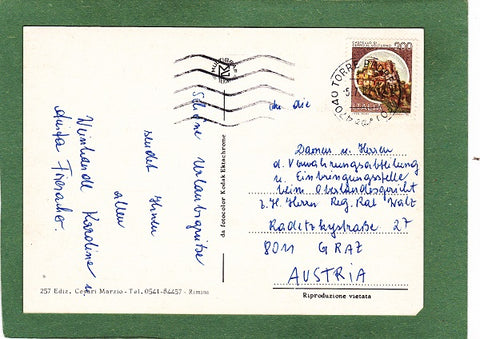 Schöne Urlaubsgrüße
sendet Ihnen
allen
Karoline u.
Anita
da fotocolor Kodak Ektachrome
257 Ediz. Cesari Marzio - Tel. 0541-84457 - Rimini
200
ITALIA
TORRE
47040
An die
Damen u. Herren
d. Verwahrungsabteilung
u. Einbringungsstelle
beim Oberlandesgericht
z. H. Herrn Reg. Rat Walz
Radetzkystraße 27
8011 GRAZ
AUSTRIA
Riproduzione vietata